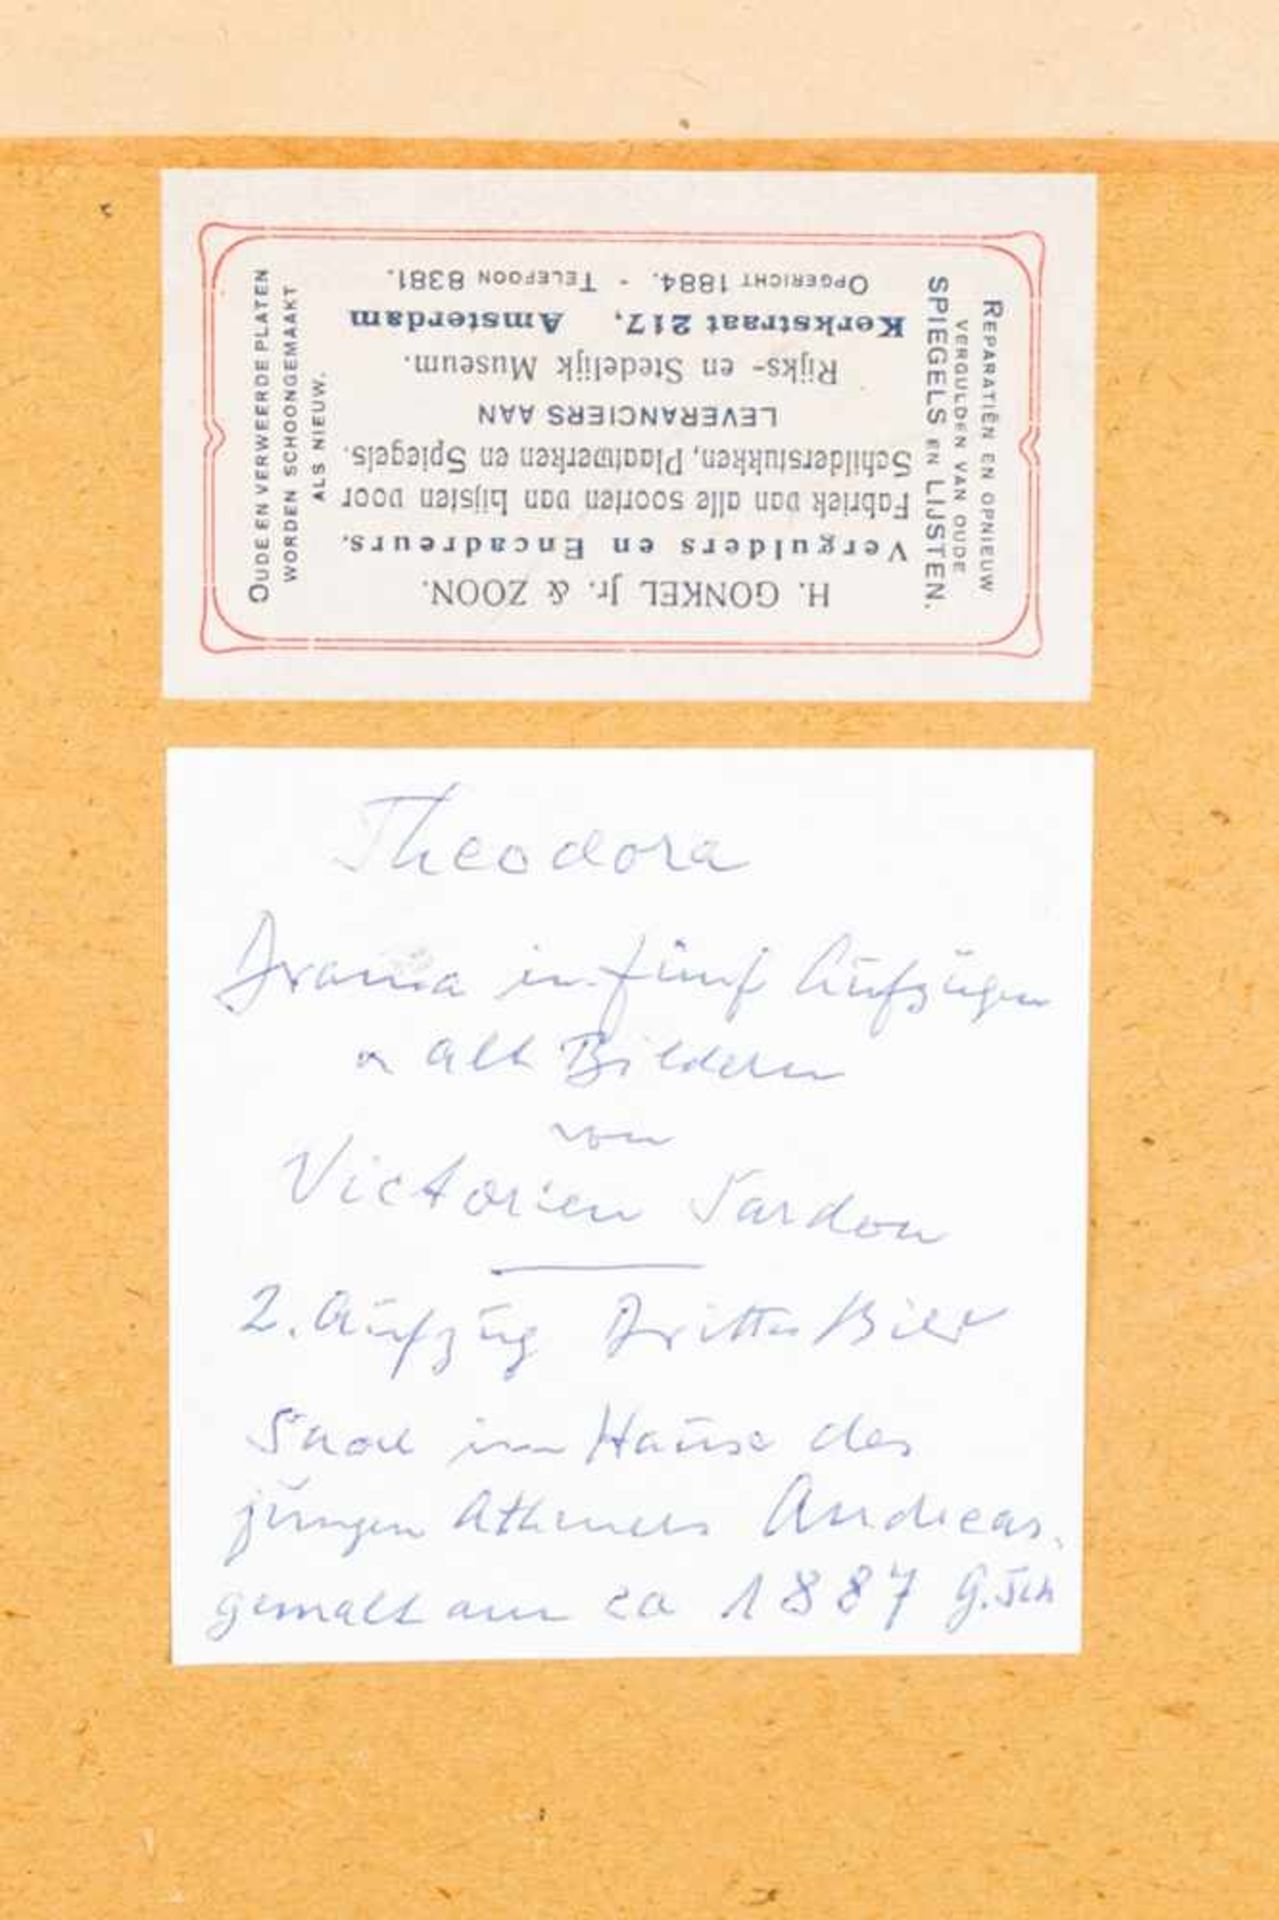 H. GONKEL Jr. & ZOON.
Vergulders en Encadreurs.
Fabriek van alle soorten van Lijsten voor
Schilderstukken, Plaatwerken en Spiegels.
LEVERANCIERS AAN
Rijks- en Stedelijk Museum.
Kerkstraat 217, Amsterdam
OPGERICHT 1884. - TELEFOON 8381.
REPARATIËN EN OPNIEUW
VERGULDEN VAN OUDE
SPIEGELS EN LIJSTEN.
OUDE EN VERWEERDE PLATEN
WORDEN SCHOONGEMAAKT
ALS NIEUW.
Theodora
Drama in fünf Aufzügen
Bildern
von
Victorien Sardou
2. Aufzug Drittes Bild
Saal im Hause des
jungen Atheners Andreas.
gemalt um ca 1887 G. Sch